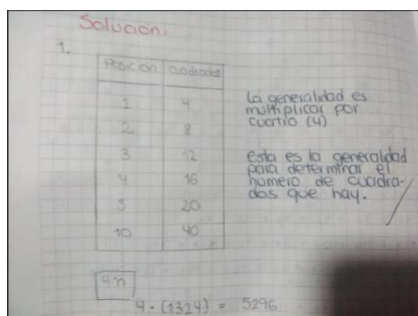 Solución.
1.
Posición cuadrados
1 4
2 8
3 12
4 16
5 20
10 40
4n
4 · (1324) = 5296
La generalidad es
multiplicar por
cuatro (4)
esta es la generalidad
para determinar el
número de cuadra-
dos que hay.